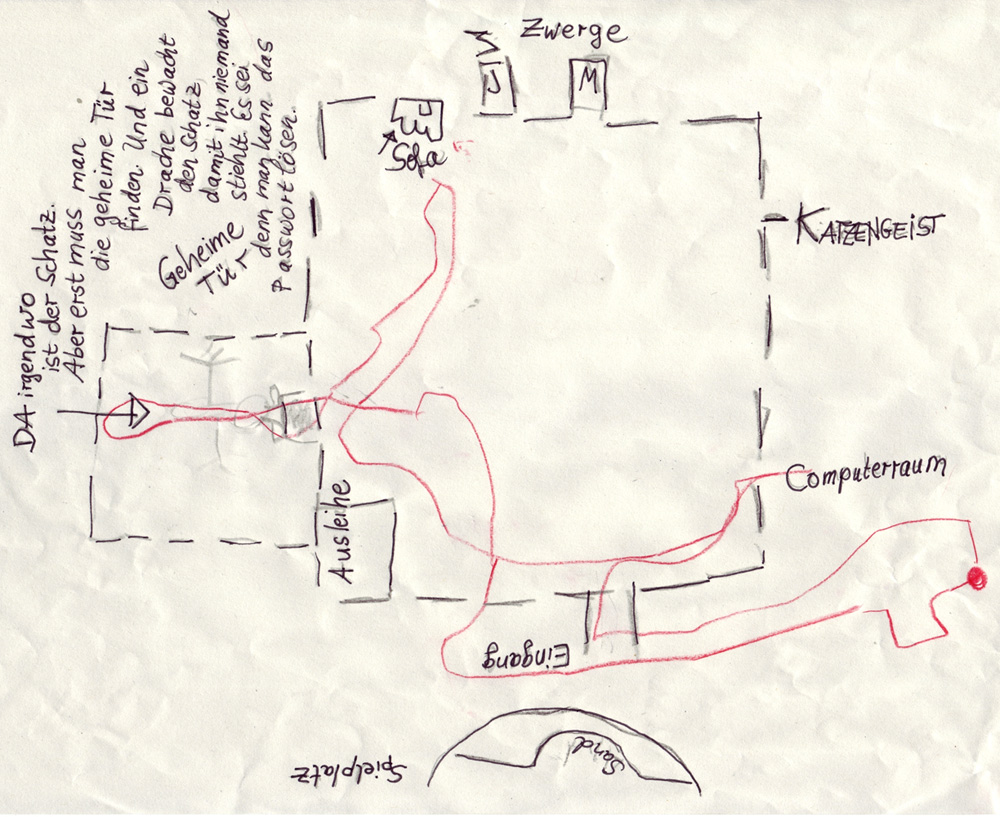 DA irgendwo
ist der Schatz.
Aber erst muss man
die geheime Tür
finden. Und ein
Drache bewacht
den Schatz,
damit ihn niemand
stiehlt. Es sei
denn man kann das
Passwort lösen.
Geheime
Tür
Zwerge
J
M
Sofa
KATZENGEIST
Computerraum
Ausleihe
Eingang
Spielplatz
Sand